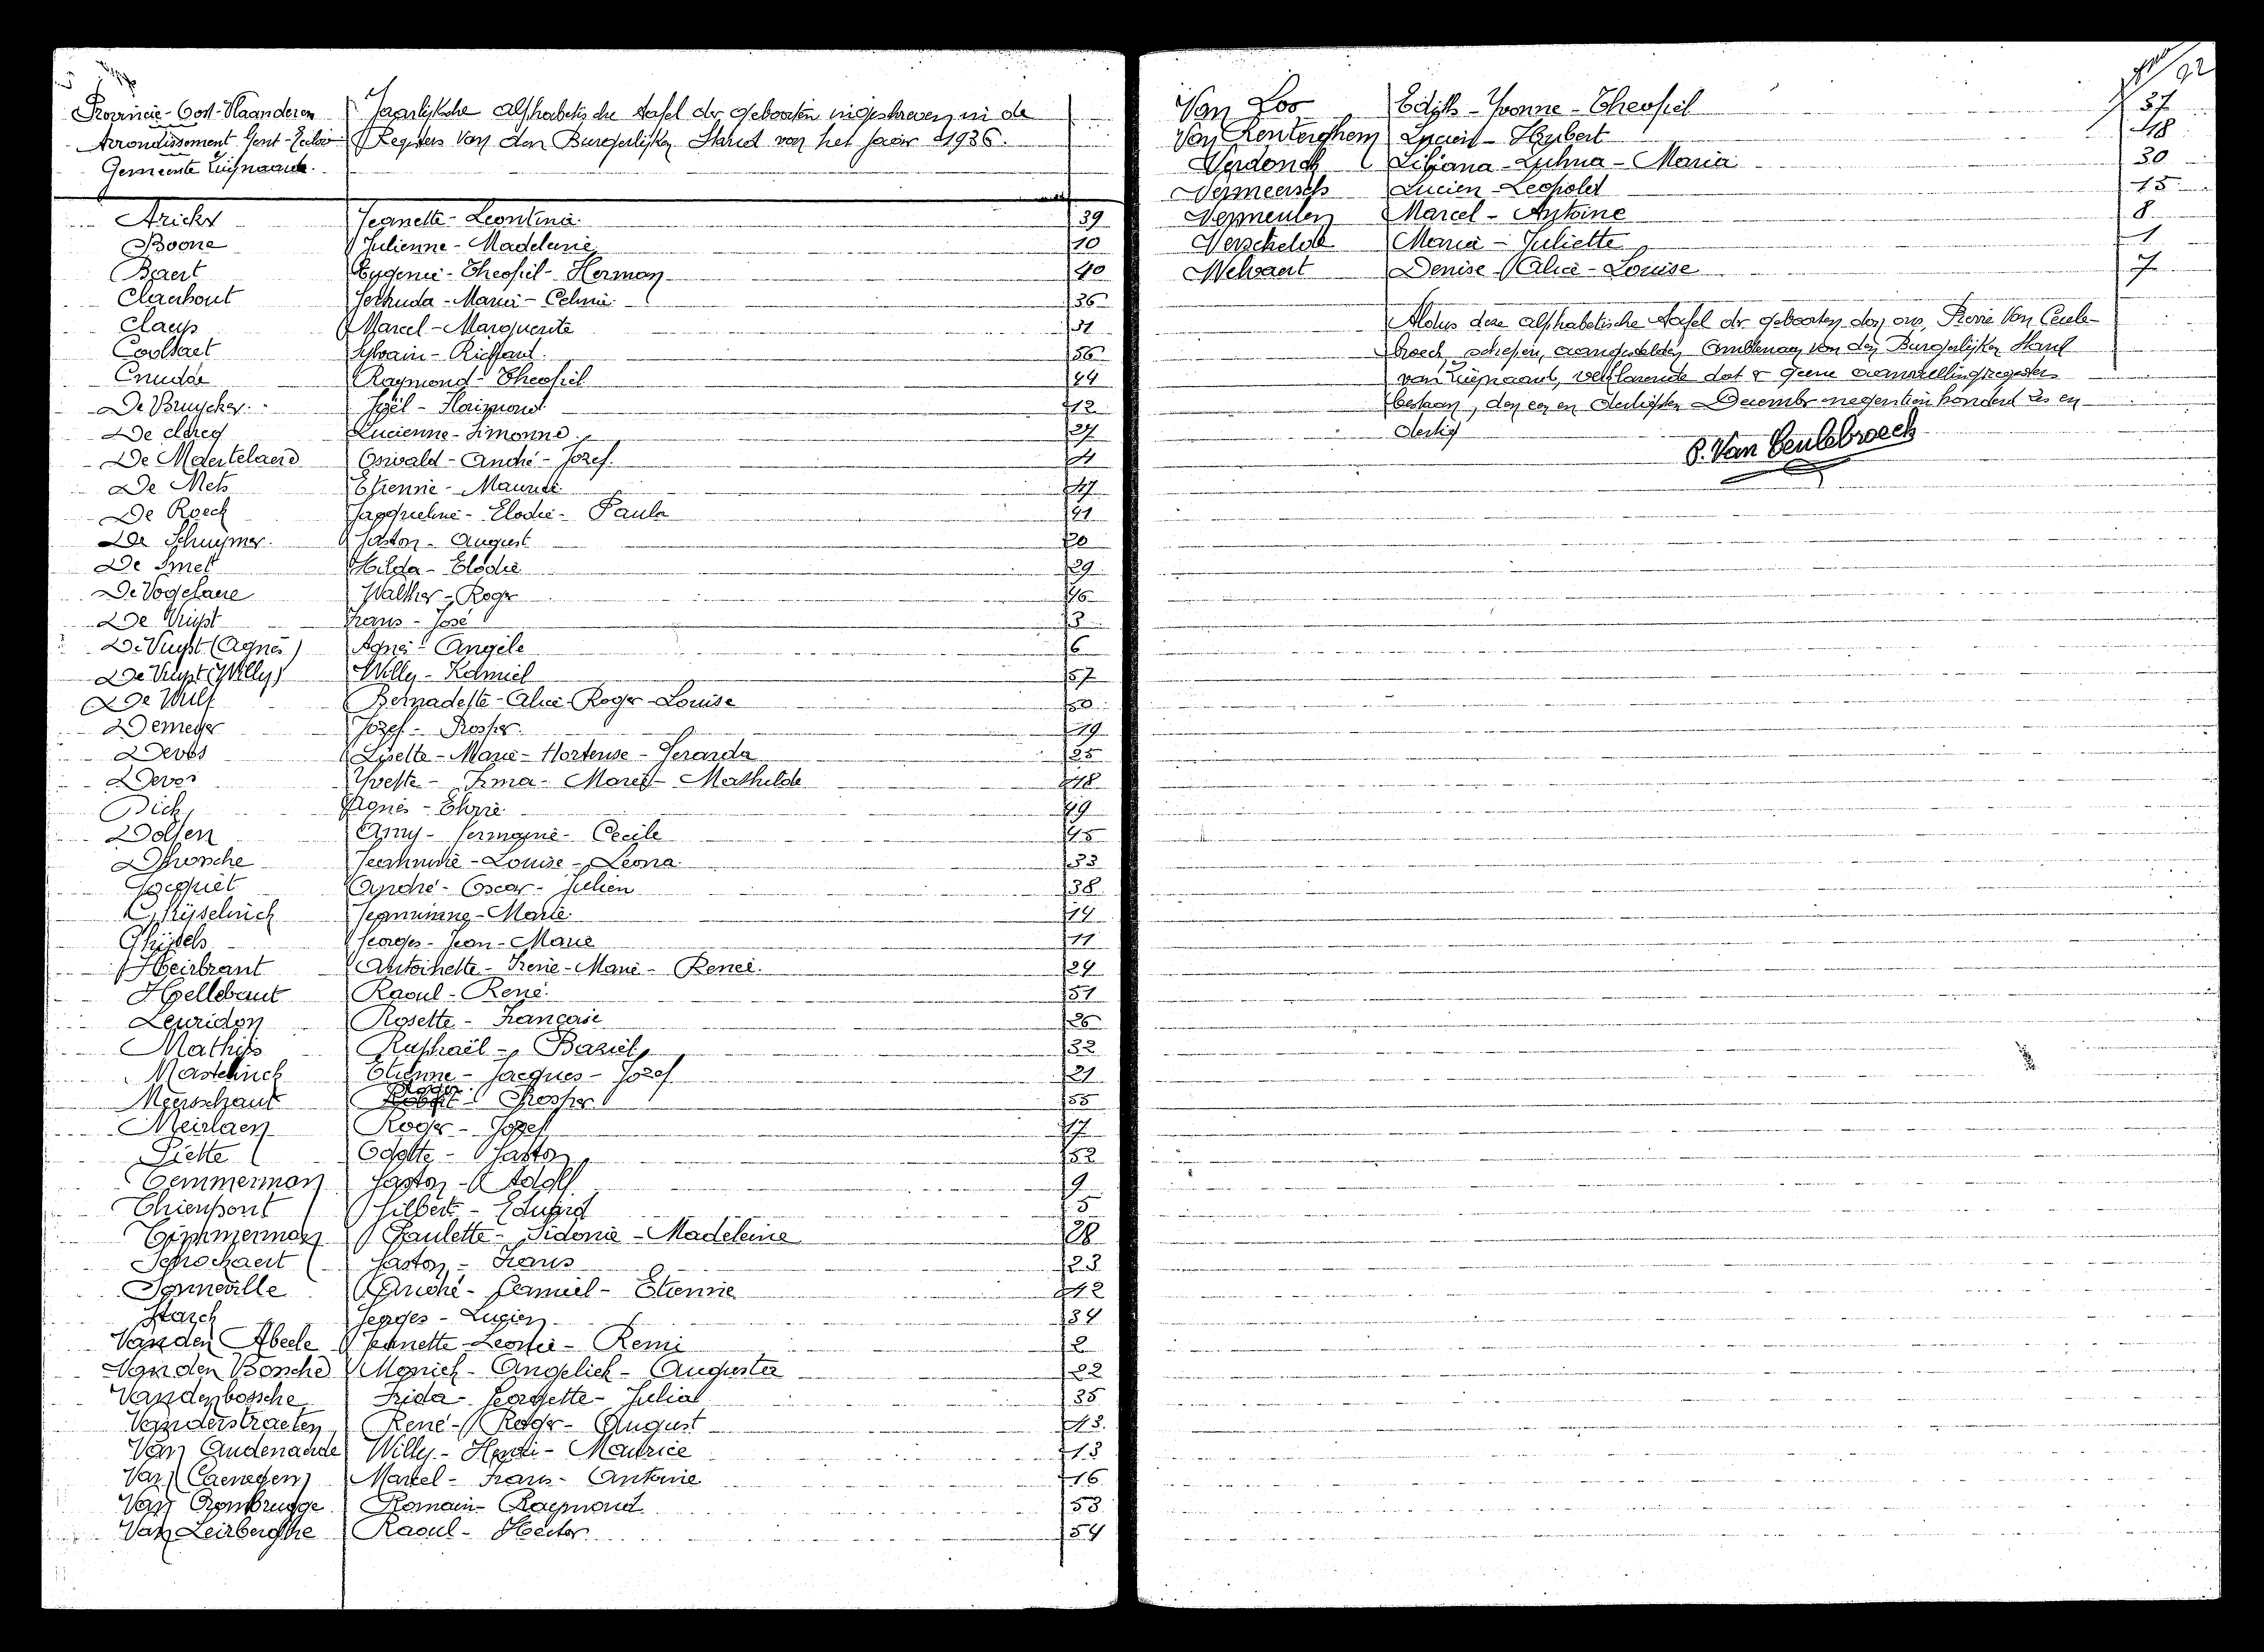 Provincie-Oost-Vlaanderen
Arrondissement Gent-Eecloo
Gemeente
Jaarlijksche alphabetische tafel der geboorten ingeschreven in de
Registers van den Burgerlijken Stand van het jaar 1936.
Jeannette-Leontina 39
Boone Julienne-Madeleine 10
Baert Eugenie-Theofiel-Herman 40
Claerhout Gertruda-Maria-Celina 36
Claeys Marcel-Marguerite 31
Coolsaet Sylvain-Richard 56
Cnudde Raymond-Theofiel 44
De Bruycker 12
De Clercq Lucienne-Simonne 27
De Maertelaere Oswald-André-Jozef 4
De Mets Etienne-Maurice 47
De Roeck Jacqueline-Elodie-Paula 41
De Schuymer Gaston-August 20
De Smet Hilda-Elodie 29
De Vogelaere Walther-Roger 46
De Vuyst Frans-José 3
De Vuyst (Agnes) Agnes-Angèle 6
De Vuyst (Willy) Willy-Kamiel 57
De Wulf Bernadette-Alice-Roger-Louise 50
Demeyer Jozef-Prosper 19
Devos Lisette-Marie-Hortense-Gerarda 25
Devos Yvette-Irma-Maria-Mathilde 48
Dick Agnes 49
Dolfen Anny-Germaine-Cecile 45
Dhonche Jeannine-Louise-Leona 33
Jacquet André-Oscar-Julien 38
Ghijselinck Jeannine-Marie 14
Ghijsels Georges-Jean-Marie 11
Heirbrant Antoinette-Irene-Marie-Renée 24
Hellebaut Raoul-René 51
Leuridon Rosette-Françoise 26
Mathijs Raphaël-Baziel 32
Mastelinck Etienne-Jacques-Jozef 21
Meerschaut Roger Prosper 55
Meirlaen Roger-Jozef 17
Piette Odette-Gaston 52
Temmerman Gaston-Adolf 9
Thienpont Gilbert-Eduard 5
Timmerman Paulette-Sidonie-Madeleine 28
Schockaert Gaston-Frans 23
Sonneville André-Camiel-Etienne 42
Starck Georges-Lucien 34
Van den Abeele Jeannette-Leonie-Remi 2
Van den Bossche Monick-Angelick-Augusta 22
Vandenbossche Frida-Georgette-Julia 35
Vanderstraeten René-Roger-August 43
Van Audenaerde Willy-Henri-Maurice 13
Van Caenegem Marcel-Frans-Antoine 16
Van Crombrugge Romain-Raymond 53
Van Leirberghe Raoul-Hector 54
92
Van Loo Edith-Yvonne-Theofiel 37
Van Renterghem Lucien-Hubert 18
Verdonck Liliana-Zulma-Maria 30
Vermeersch Lucien-Leopold 15
Vermeulen Marcel-Antoine 8
Verschelde Maria-Juliette 1
Welvaert Denise-Alice-Louise 7
Aldus deze alphabetische tafel der geboorten door ons, Pierre Van Ceule-
broeck, schepen, aangestelden ambtenaar van den Burgerlijken Stand
van, verklarende dat er geene aanvullingsregisters
bestaan, den een en dertigsten December negentien honderd zes en
dertig
P. Van Ceulebroeck